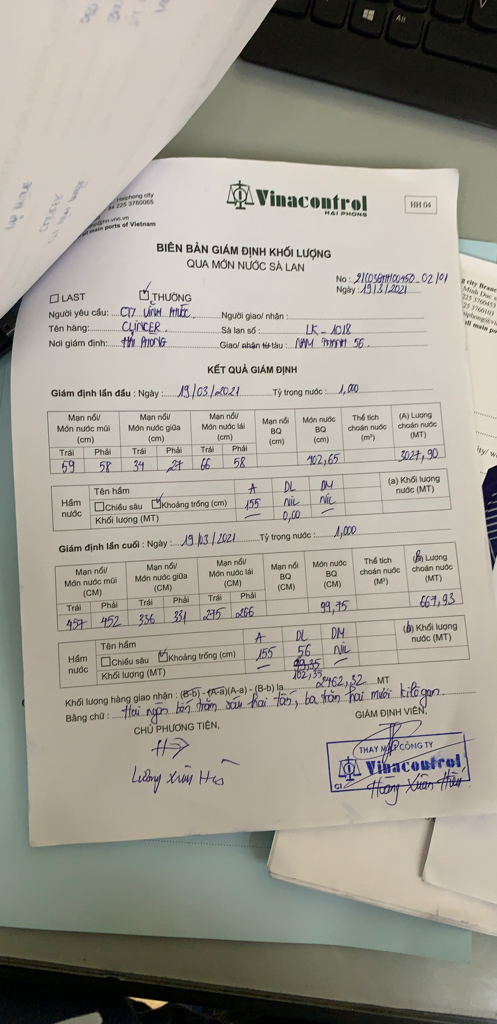 Haiphong city
225 3760065
@hn.vnn.vn
all main ports of Vietnam
Vinacontrol
HAI PHONG
HH 04
BIÊN BẢN GIÁM ĐỊNH KHỐI LƯỢNG
QUA MÓN NƯỚC SÀ LAN
No :
Ngày : 19/3/2021
LAST THƯỜNG
Người yêu cầu: CTY VĨNH PHƯỚC Người giao/ nhận :
Tên hàng: CLINCER Sà lan số : LK - 1018
Nơi giám định: HẢI PHÒNG Giao/ nhận từ tàu : NAM THÀNH 56
KẾT QUẢ GIÁM ĐỊNH
Giám định lần đầu : Ngày : 19/03/2021 Tỷ trọng nước : 1,000
Mạn nổi/ Món nước mũi (cm) Mạn nổi/ Món nước giữa (cm) Mạn nổi/ Món nước lái (cm) Mạn nổi BQ (cm) Món nước BQ (cm) Thể tích choán nước (m³) (A) Lượng choán nước (MT)
Trái Phải Trái Phải Trái Phải
59 58 34 27 66 58 102,65 3027,90
Hầm nước Tên hầm A DL DM (a) Khối lượng nước (MT)
Chiều sâu Khoảng trống (cm) 155 NIL NIL
Khối lượng (MT) — 0,00 —
Giám định lần cuối : Ngày : 19/03/2021 Tỷ trọng nước : 1,000
Mạn nổi/ Món nước mũi (CM) Mạn nổi/ Món nước giữa (CM) Mạn nổi/ Món nước lái (CM) Mạn nổi BQ (CM) Món nước BQ (CM) Thể tích choán nước (M³) (B) Lượng choán nước (MT)
Trái Phải Trái Phải Trái Phải
457 452 336 331 275 266 99,75 667,93
Hầm nước Tên hầm A DL DM (b) Khối lượng nước (MT)
Chiều sâu Khoảng trống (cm) 155 56 NIL
Khối lượng (MT) — 102,35 —
Khối lượng hàng giao nhận : (B-b) - (A-a)(A-a) - (B-b) là 2462,32 MT
Bằng chữ : Hai ngàn bốn trăm sáu hai tấn, ba trăm hai mươi kilôgan.
CHỦ PHƯƠNG TIỆN, GIÁM ĐỊNH VIÊN,
THAY MẶT CÔNG TY
Vinacontrol
Lương Xuân
Hoàng Xuân